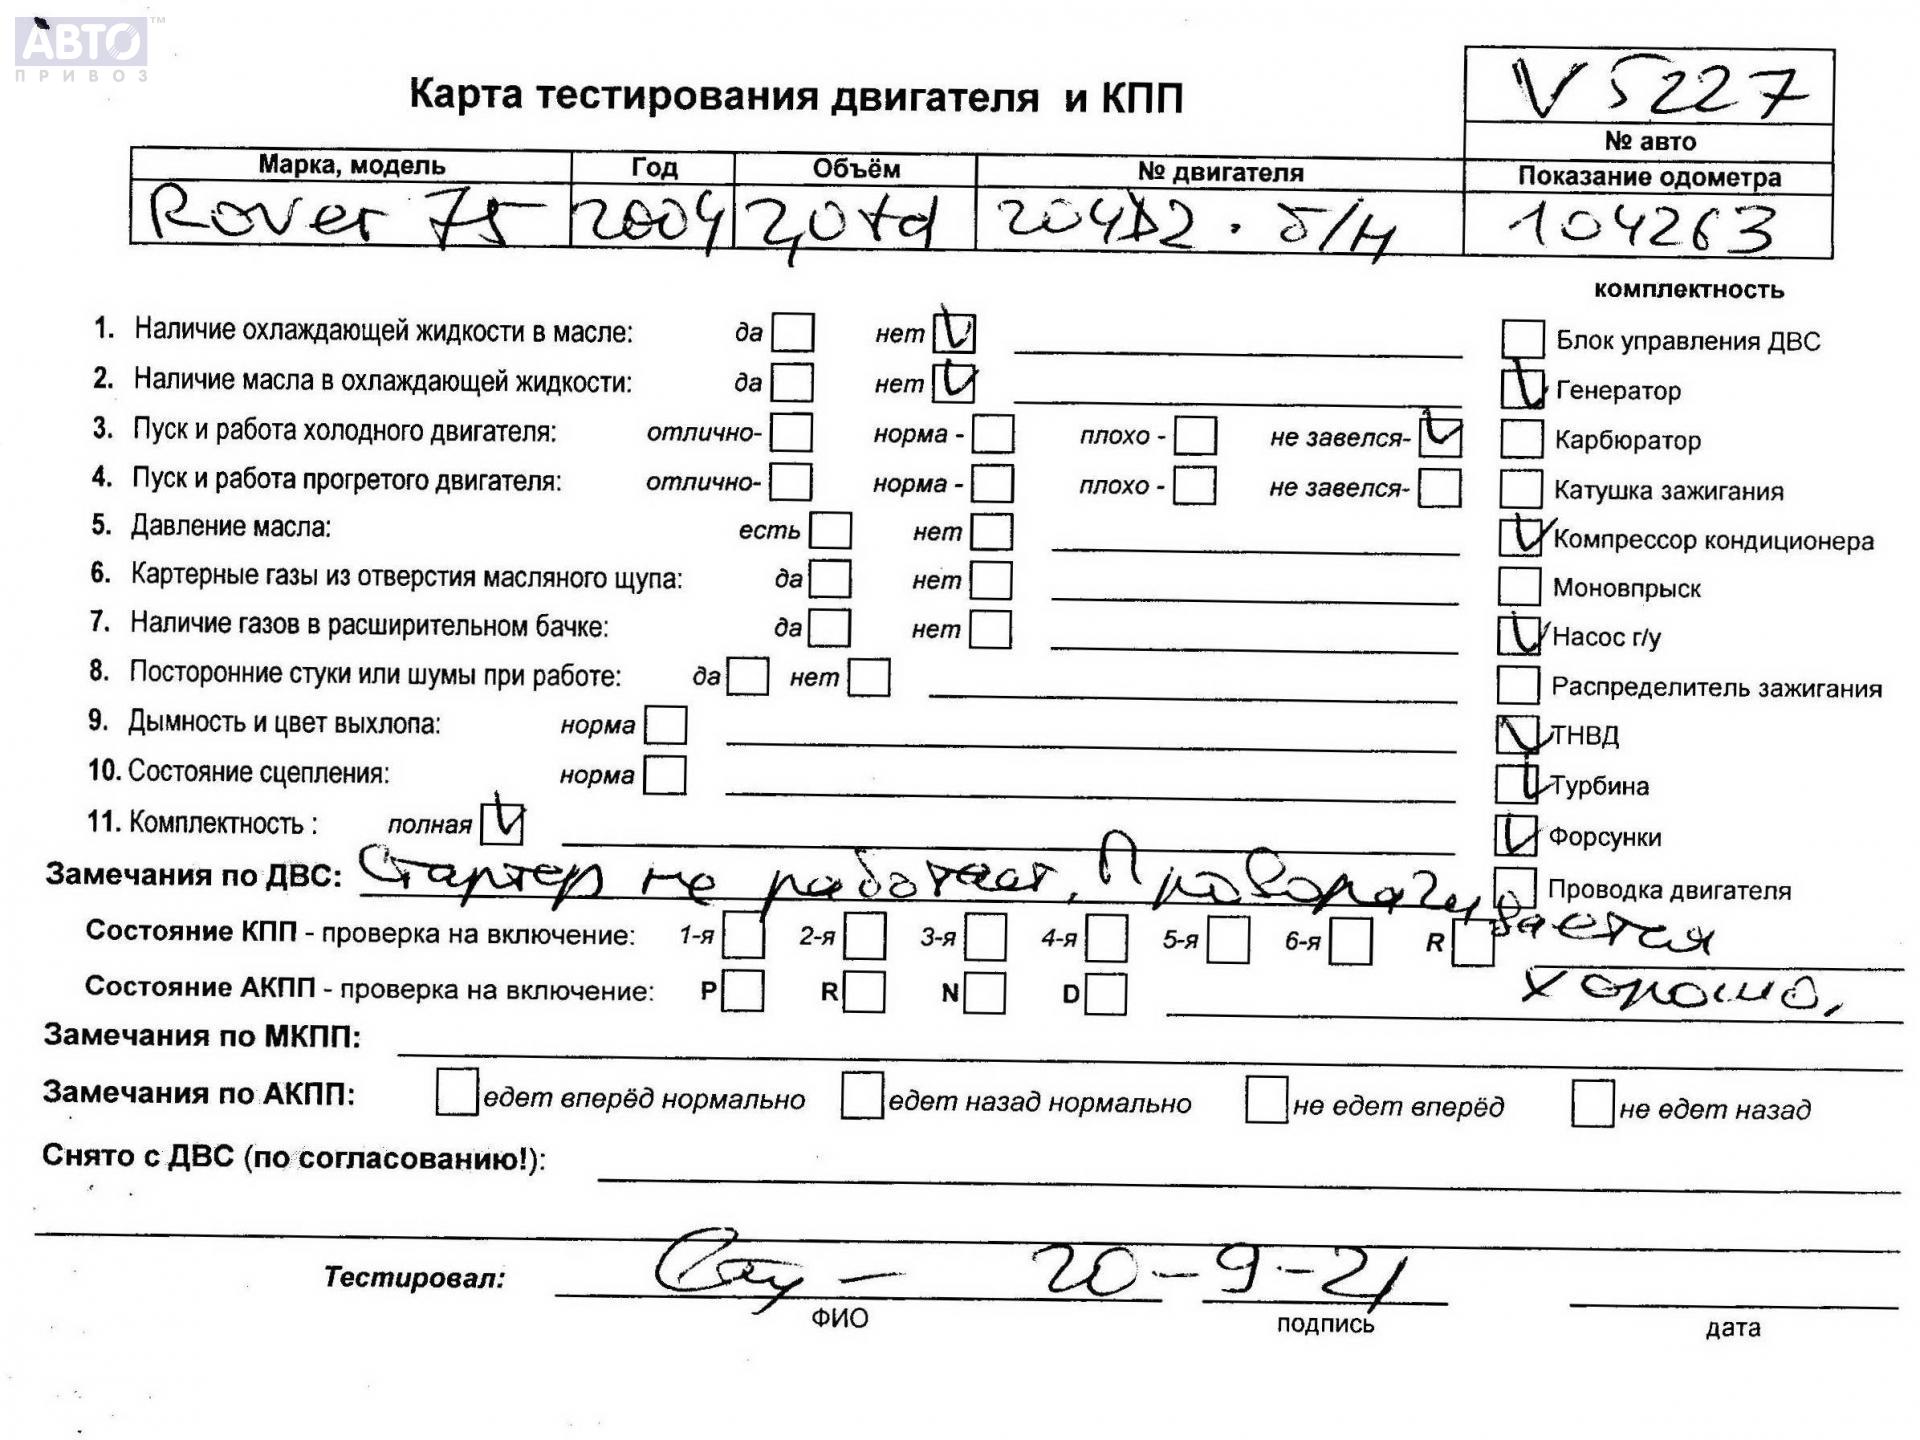 АВТО ™
ПРИВОЗ
Карта тестирования двигателя и КПП
V 5227
№ авто
Марка, модель Год Объём № двигателя Показание одометра
Rover 75 2004 2,0td 204D2 . б/н 104263
комплектность
1. Наличие охлаждающей жидкости в масле: да нет Блок управления ДВС
2. Наличие масла в охлаждающей жидкости: да нет Генератор
3. Пуск и работа холодного двигателя: отлично- норма - плохо - не завелся- Карбюратор
4. Пуск и работа прогретого двигателя: отлично- норма - плохо - не завелся- Катушка зажигания
5. Давление масла: есть нет Компрессор кондиционера
6. Картерные газы из отверстия масляного щупа: да нет Моновпрыск
7. Наличие газов в расширительном бачке: да нет Насос г/у
8. Посторонние стуки или шумы при работе: да нет Распределитель зажигания
9. Дымность и цвет выхлопа: норма ТНВД
10. Состояние сцепления: норма Турбина
11. Комплектность : полная Форсунки
Замечания по ДВС: Стартер не работает. Проворачивается Проводка двигателя
Состояние КПП - проверка на включение: 1-я 2-я 3-я 4-я 5-я 6-я R
хорошо.
Состояние АКПП - проверка на включение: P R N D
Замечания по МКПП:
Замечания по АКПП: едет вперёд нормально едет назад нормально не едет вперёд не едет назад
Снято с ДВС (по согласованию!):
Тестировал: 20-9-21
ФИО подпись дата